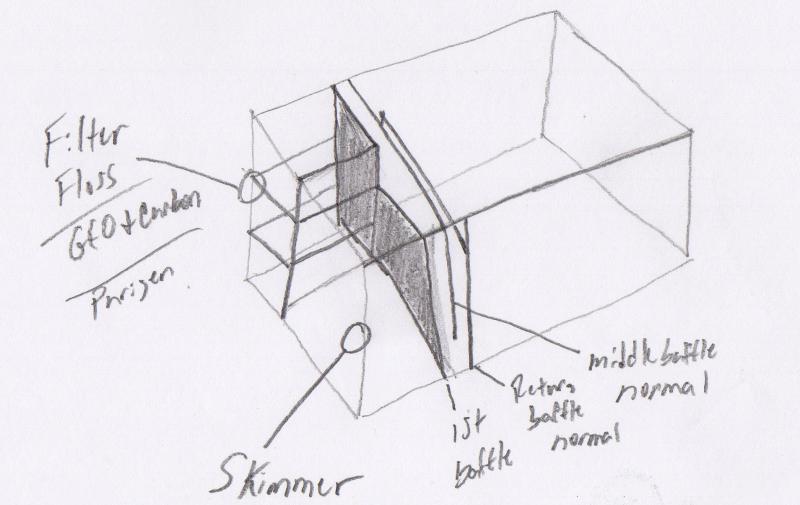 Filter
Floss
GFO + Carbon
Purigen
Skimmer
1st
baffle
Return
baffle
normal
middle baffle
normal